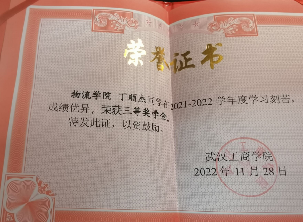 荣誉证书
物流学院 丁顺杰同学在2021-2022学年度学习刻苦，
成绩优异，荣获三等奖学金。
特发此证，以资鼓励。
武汉工商学院
2022年11月28日